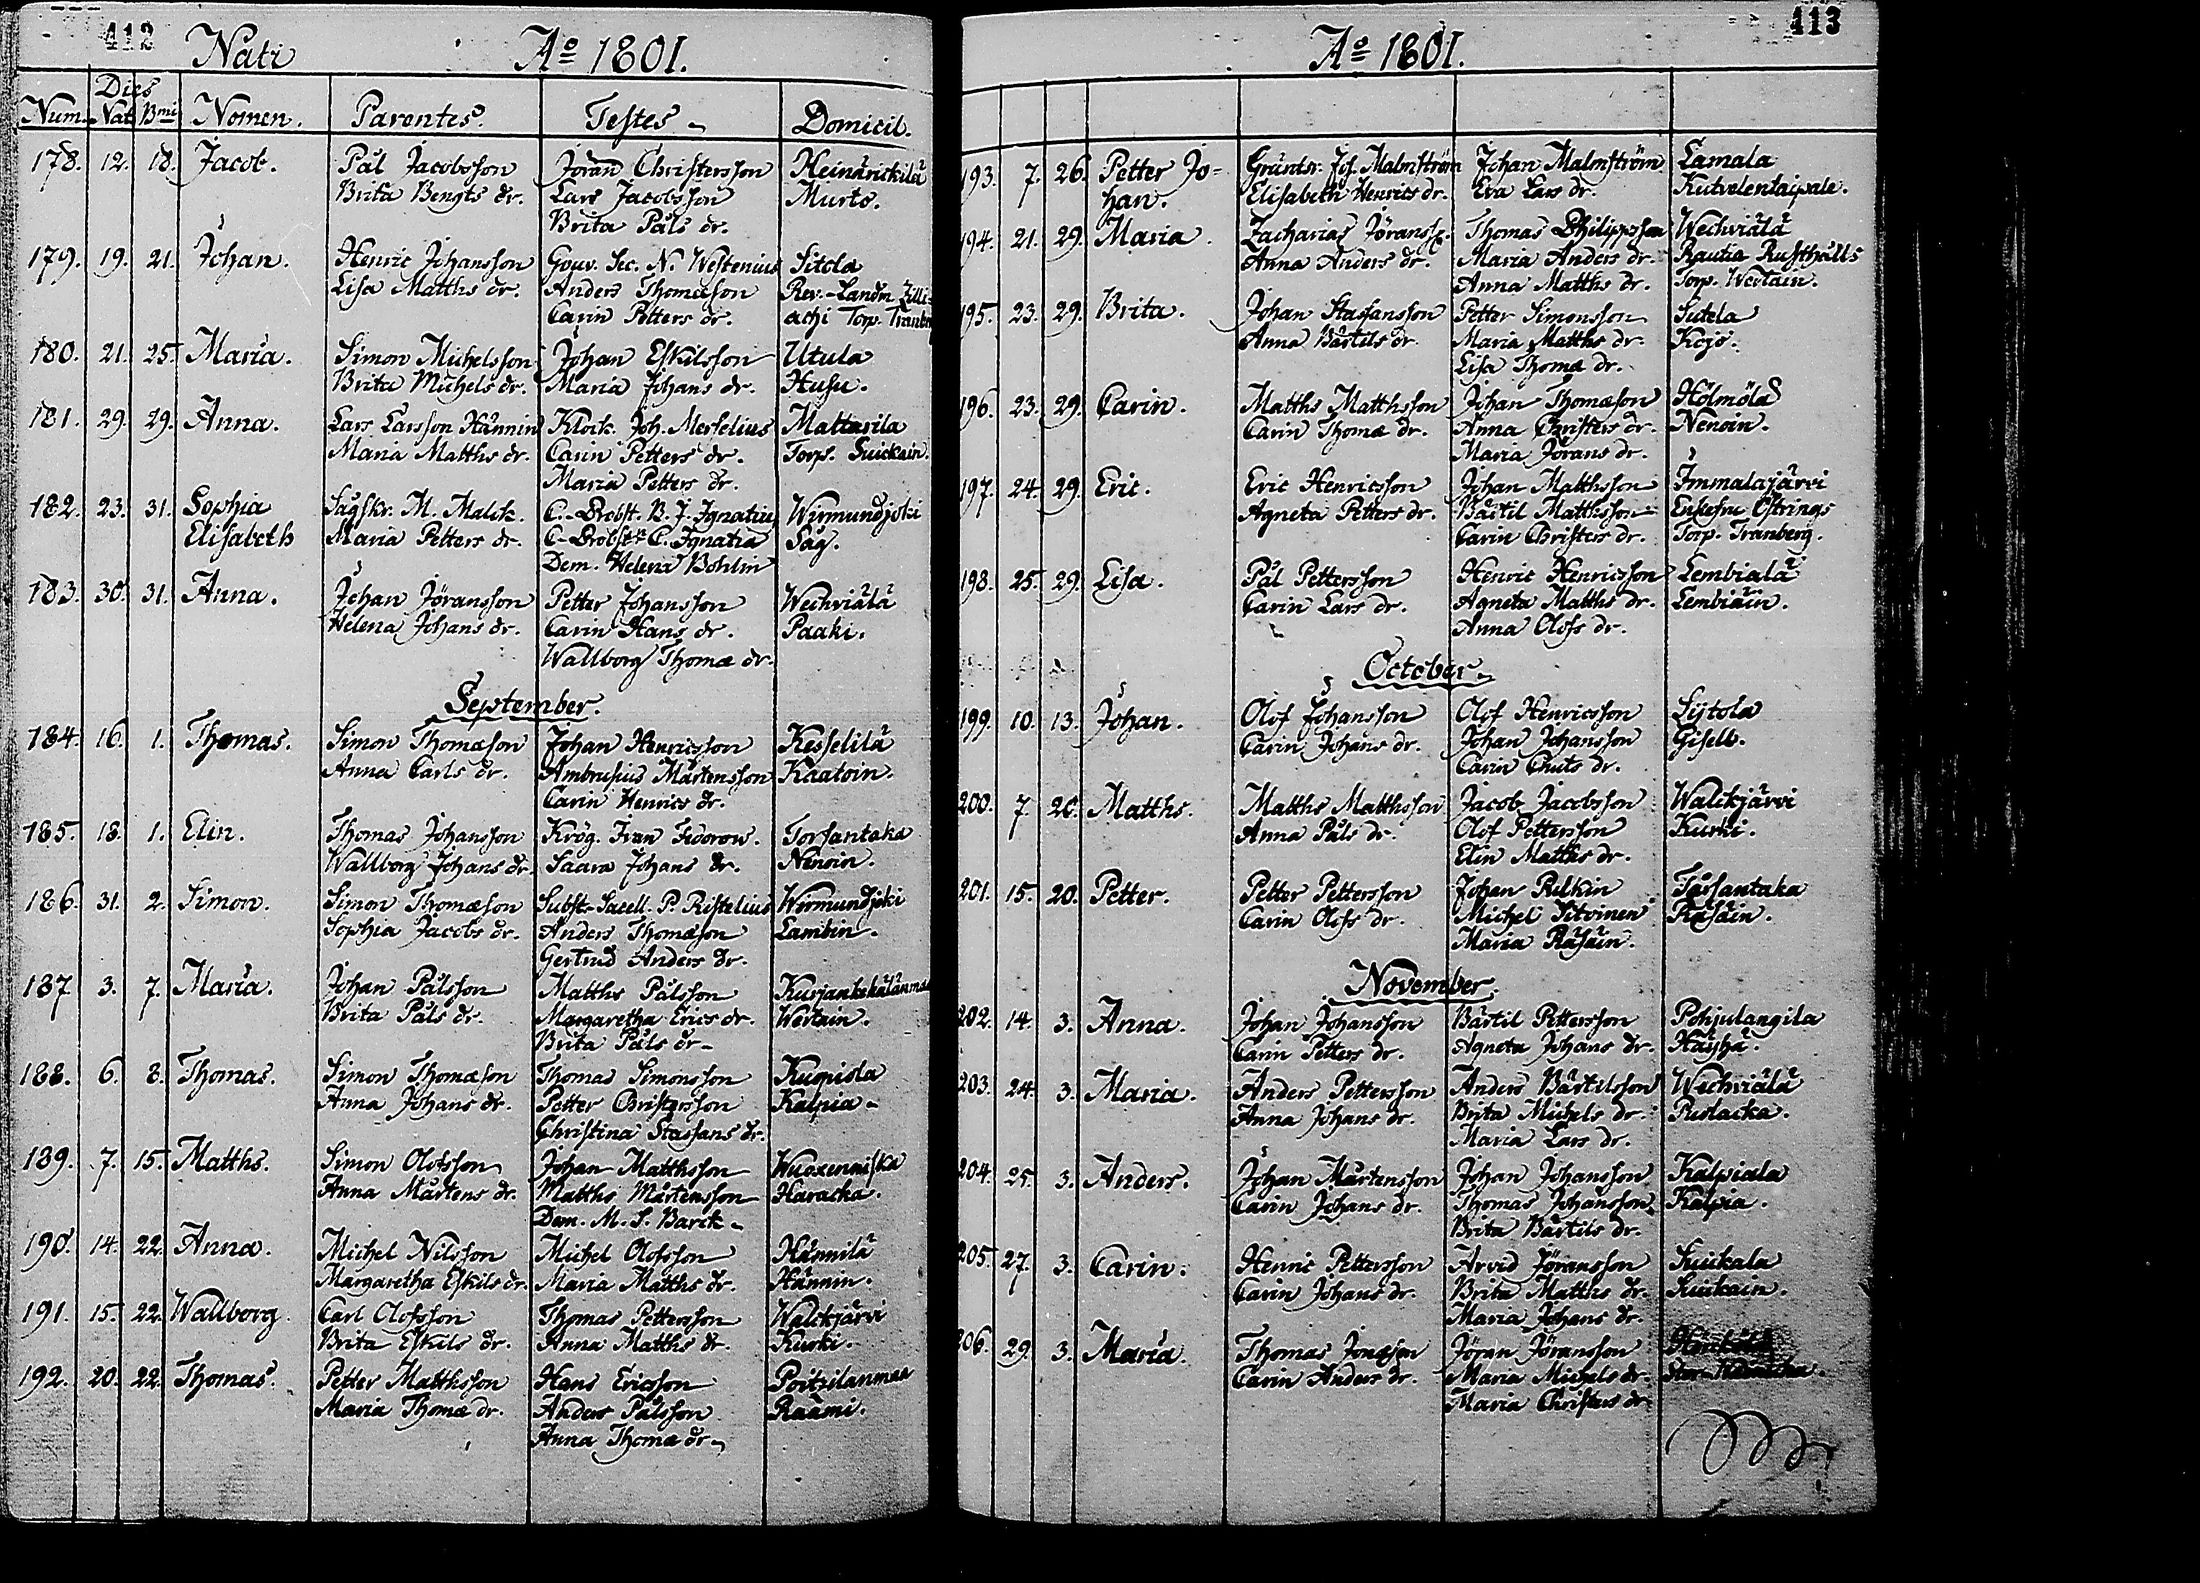 412
Nati Aº 1801.
Dies
Num. Nat. Bmi Nomen. Parentes. Testes Domicil.
178. 12. 18. Jacob. Pål Jacobsson Jöran Christersson Heinärickilä
Brita Bengts dr. Lars Jacobsson Murto.
Brita Påls dr.
179. 19. 21. Johan. Henric Johansson Gouv. Sec. N. Westenius Sitola
Lisa Matths dr. Anders Thomæson Rev. Landm. Zilli-
Carin Petters dr. achi Torp.
180. 21. 25. Maria. Simon Michelsson Johan Eskilsson Utula
Brita Michels dr. Maria Johans dr. Husu.
181. 29. 29. Anna. Lars Larsson Hännin Klock. Joh. Merselius Mattarila
Maria Matths dr. Carin Petters dr. Torp. Suickain.
Maria Petters dr.
182. 23. 31. Sophia Sågskr. M. Malck. C. Probst. B. J. Ignatius Wirmundjoki
Elisabeth Maria Petters dr. C. Probst. C. Ignatia Såg.
Dem. Helena Bohlin
183. 30. 31. Anna. Johan Jöransson Petter Johansson Wechviälä
Helena Johans dr. Carin Hans dr. Paaki.
Wallborg Thomæ dr.
September.
184. 16. 1. Thomas. Simon Thomæson Johan Henricsson Kesselilä
Anna Carls dr. Ambrusius Mårtensson Kaatoin.
Carin Henrics dr.
185. 18. 1. Elin. Thomas Johansson Krög. Ivan Fedorow. Torsantaka
Wallborg Johans dr. Saara Johans dr. Nenoin.
186. 31. 2. Simon. Simon Thomæson Subst. Sacell. P. Ristelius Wirmundjoki
Sophia Jacobs dr. Anders Thomæson Lambin.
Gertrud Anders dr.
187. 3. 7. Maria. Johan Pålsson Matths Pålsson
Brita Påls dr. Margaretha Erics dr. Wertain.
Brita Påls dr.
188. 6. 8. Thomas. Simon Thomæson Thomas Simonsson Kuopiola
Anna Johans dr. Petter Christersson Kalpia.
Christina Staffans dr.
189. 7. 15. Matths. Simon Olofsson Johan Matthsson Wuoxenniska
Anna Mårtens dr. Matths Mårtensson Haracka.
Dem. M. S. Barck.
190. 14. 22. Anna. Michel Nilsson Michel Olofsson Hännilä
Margaretha Eskils dr. Maria Matths dr. Hännin.
191. 15. 22. Wallborg. Carl Olofsson Thomas Pettersson Walckjärvi
Brita Eskils dr. Anna Matths dr. Kurki.
192. 20. 22. Thomas. Petter Matthsson Hans Ericsson Poitzilanmaa
Maria Thomæ dr. Anders Pålsson Raami.
Anna Thomæ dr.
413
Aº 1801.
193. 7. 26. Petter Jo- Gräntsr. Jos. Malmström Johan Malmström Lamala
han. Elisabeth Henrics dr. Eva Lars dr. Kutvelentaipale.
194. 21. 29. Maria. Zacharias Jöranss. Thomas Philippsson Wechviälä
Anna Anders dr. Maria Anders dr. Rautia Rusthålls
Anna Matths dr. Torp. Wertain.
195. 23. 29. Brita. Johan Staffansson Petter Simonsson Sutela
Anna Bärtils dr. Maria Matths dr. Kojo.
Lisa Thomæ dr.
196. 23. 29. Carin. Matths Matthsson Johan Thomæson Hölmölä
Carin Thomæ dr. Anna Christers dr. Nenoin.
Maria Jörans dr.
197. 24. 29. Eric. Eric Henricsson Johan Matthsson Immalajärvi
Agneta Petters dr. Bärtil Matthsson Enkefru Östrings
Carin Christers dr. Torp. Tranberg.
198. 25. 29. Lisa. Pål Pettersson Henric Henricsson Lembialä
Carin Lars dr. Agneta Matths dr. Lembiäin.
Anna Olofs dr.
October.
199. 10. 13. Johan. Olof Johansson Olof Henricsson Sijtola
Carin Johans dr. Johan Johansson
Carin Cnuts dr.
200. 7. 20. Matths. Matths Matthsson Jacob Jacobsson Walckjärvi
Anna Påls dr. Olof Pettersson Kurki.
Elin Matths dr.
201. 15. 20. Petter. Petter Pettersson Johan Relkin Torsantaka
Carin Olofs dr. Michel Sitoinen Räsäin.
Maria Räsäin.
November.
202. 14. 3. Anna. Johan Johansson Bärtil Pettersson Pohjulangila
Carin Petters dr. Agneta Johans dr. Häyhä.
203. 24. 3. Maria. Anders Pettersson Anders Bärtilsson Wechviälä
Anna Johans dr. Brita Michels dr. Puolacka.
Maria Lars dr.
204. 25. 3. Anders. Johan Mårtensson Johan Johansson Kalpiala
Carin Johans dr. Thomas Johansson Kalpia.
Brita Bärtils dr.
205. 27. 3. Carin. Henric Pettersson Arvid Jöransson Suikala
Carin Johans dr. Brita Matths dr. Suikain.
Maria Johans dr.
206. 29. 3. Maria. Thomas Jonæson Jöran Jöransson
Carin Anders dr. Maria Michels dr.
Maria Christers dr